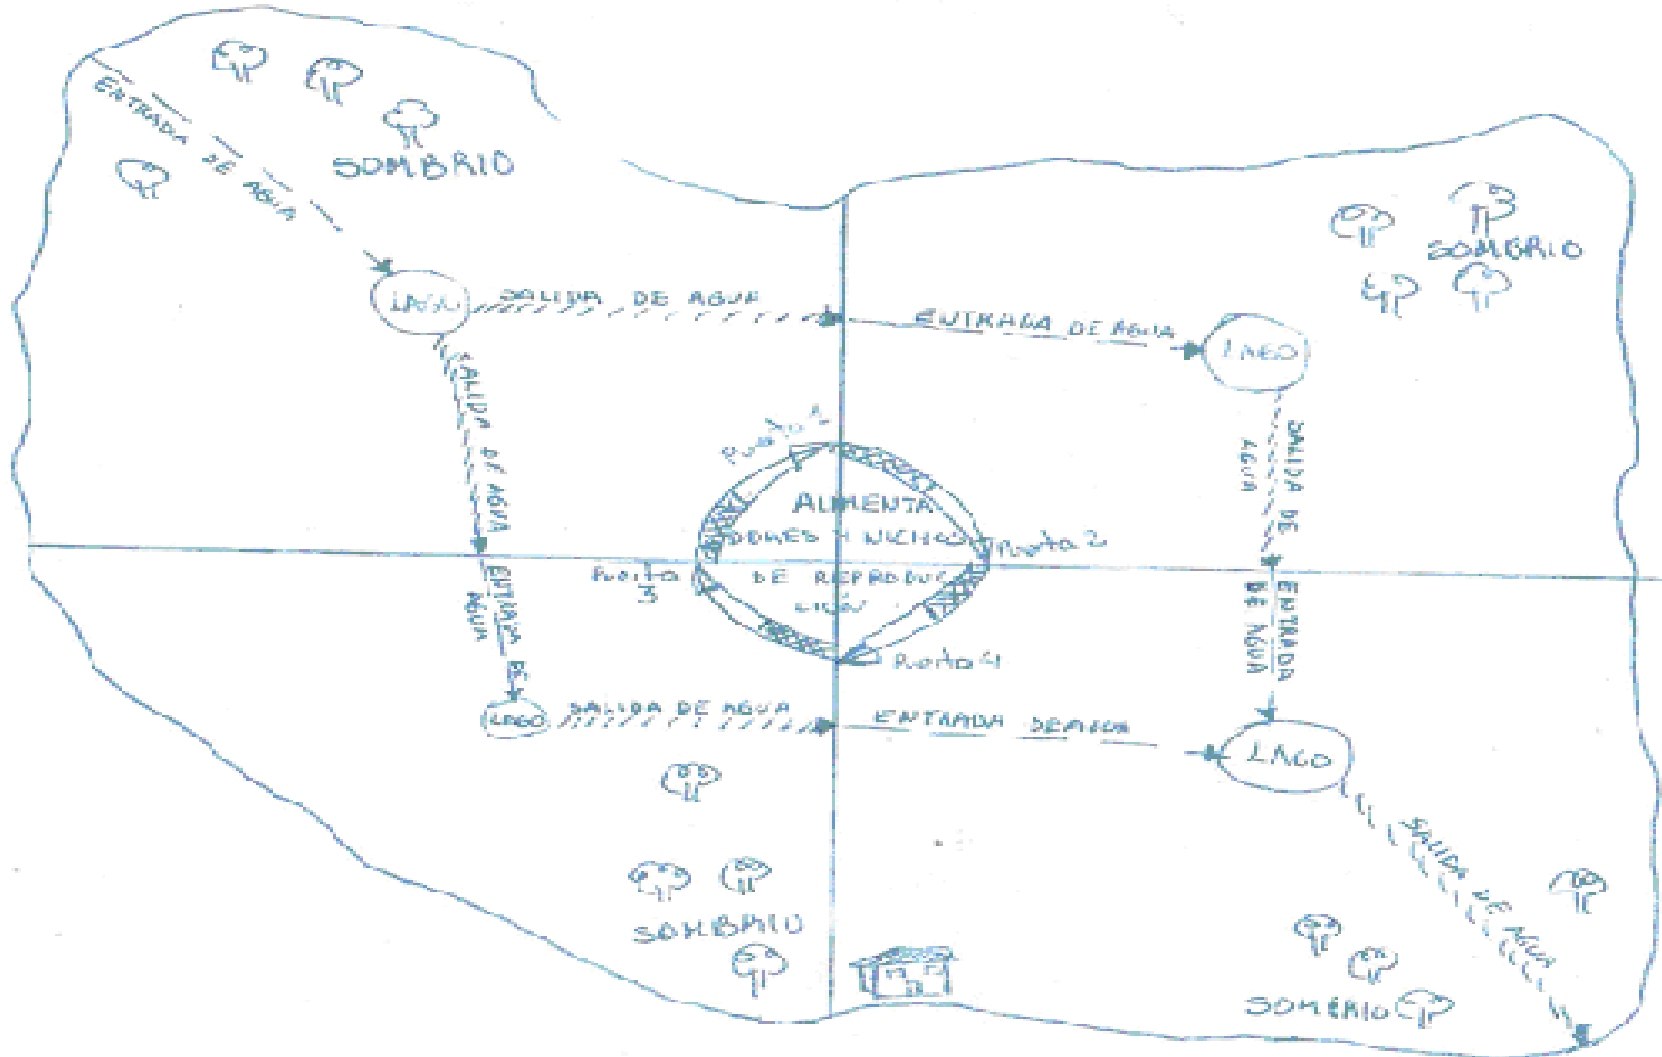 ENTRADA DE AGUA
SOMBRIO
SOMBRIO
LAGO
SALIDA DE AGUA
ENTRADA DE AGUA
LAGO
SALIDA DE AGUA
SALIDA DE
AGUA
Puerta 1
ALIMENTA
DORES Y NICHOS
DE REPRODUC
CION
Puerta 2
Puerta
3
Puerta 4
ENTRADA DE
AGUA
ENTRADA
DE AGUA
LAGO
SALIDA DE AGUA
ENTRADA DE AGUA
LAGO
SALIDA DE AGUA
SOMBRIO
SOMBRIO